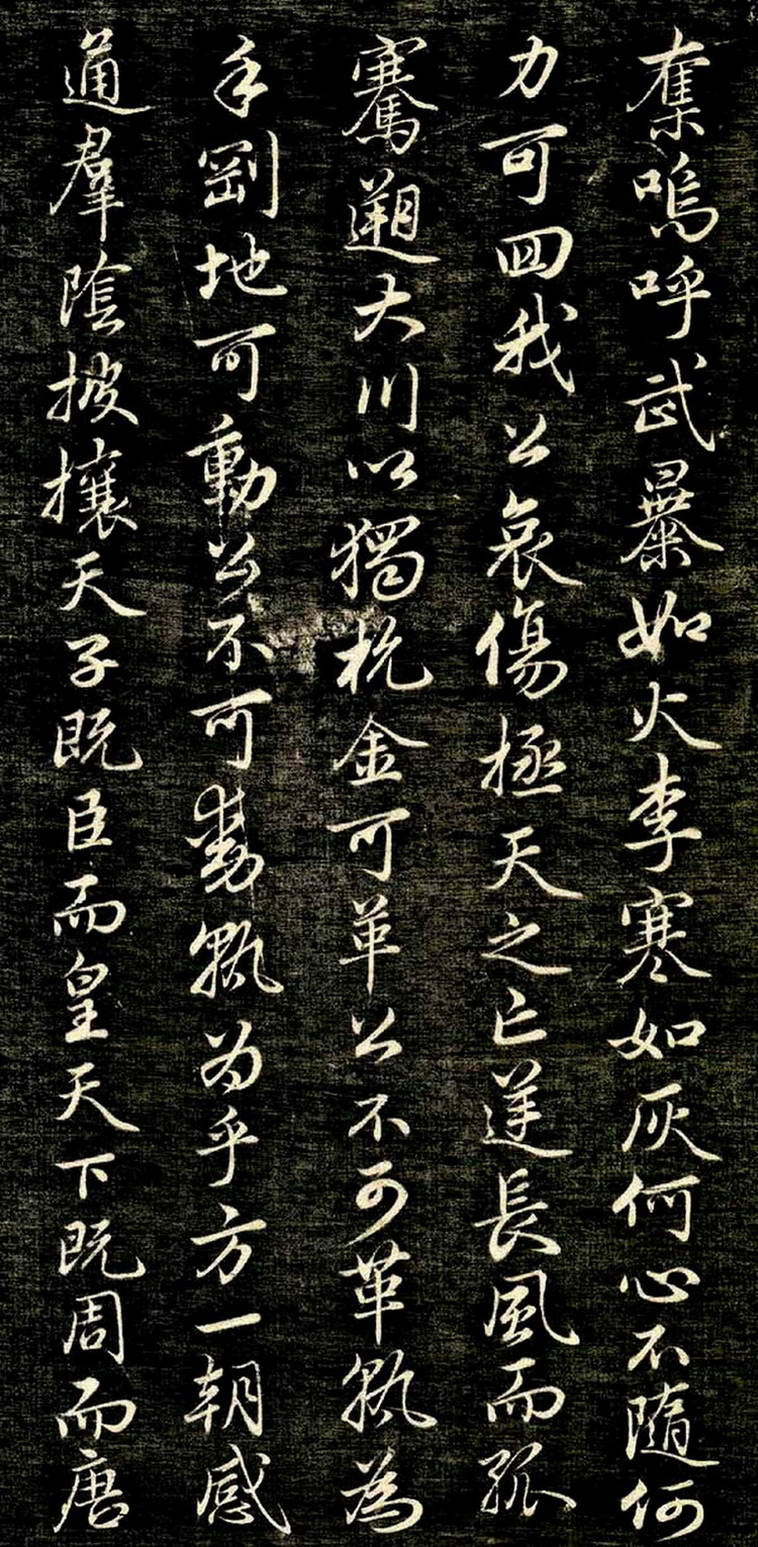 奪嗚呼武暴如火李寒如灰何心不隨何
力可回我公哀傷極天之亡逆長風而孤
騫遡大川以獨航金可革公不可革孰為
乎剛地可動公不可動孰為乎方一朝感
通羣陰披攘天子既臣而皇天下既周而唐